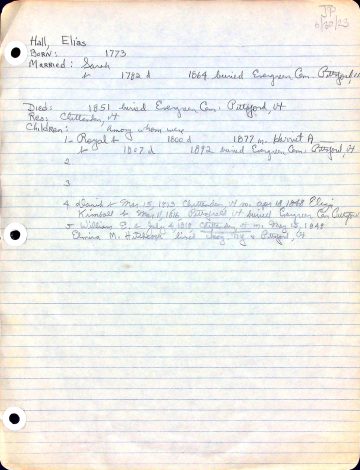 JP
6/20/23
Hall, Elias
Born: 1773
Married: Sarah
b 1782 d 1864 buried Evergreen Cem. Pittsford, Vt
Died: 1851 buried Evergreen Cem. Pittsford, Vt
Res: Chittenden, Vt
Children: Among whom were
1- Royal b 1800 d 1877 m. A
b 1807 d 1892 buried Evergreen Cem. Pittsford, Vt
2
3
4 David b Mar 15, 1813 Chittenden, Vt m. Apr 18, Eliza
Kimball b Mar 11, 1816 Pittsfield Vt buried Evergreen Cem
5 William E. b July 4 1818 Chittenden Vt m. May 15, 1848
Elmira M. Hitchcock lived & Pittsford, Vt